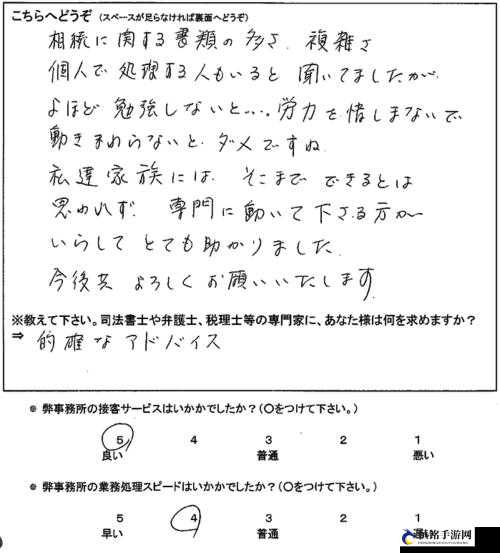 こちらへどうぞ (スペースが足らなければ裏面へどうぞ)
相続に関する書類の多さ、複雑さ
個人で処理する人もいると聞いてましたが
よほど勉強しないと…、労力を惜しまないで
動きまわらないと、ダメですね
私達家族には、そこまでできるとは
思われず、専門に動いて下さる方が
いらしてとても助かりました
今後共よろしくお願いいたします
※教えて下さい。司法書士や弁護士、税理士等の専門家に、あなた様は何を求めますか?
⇒ 的確なアドバイス
※ 弊事務所の接客サービスはいかがでしたか?(〇をつけて下さい。)
5 4 3 2 1
良い 普通 悪い
※ 弊事務所の業務処理スピードはいかがでしたか?(〇をつけて下さい。)
5 4 3 2 1
早い 普通
手游网